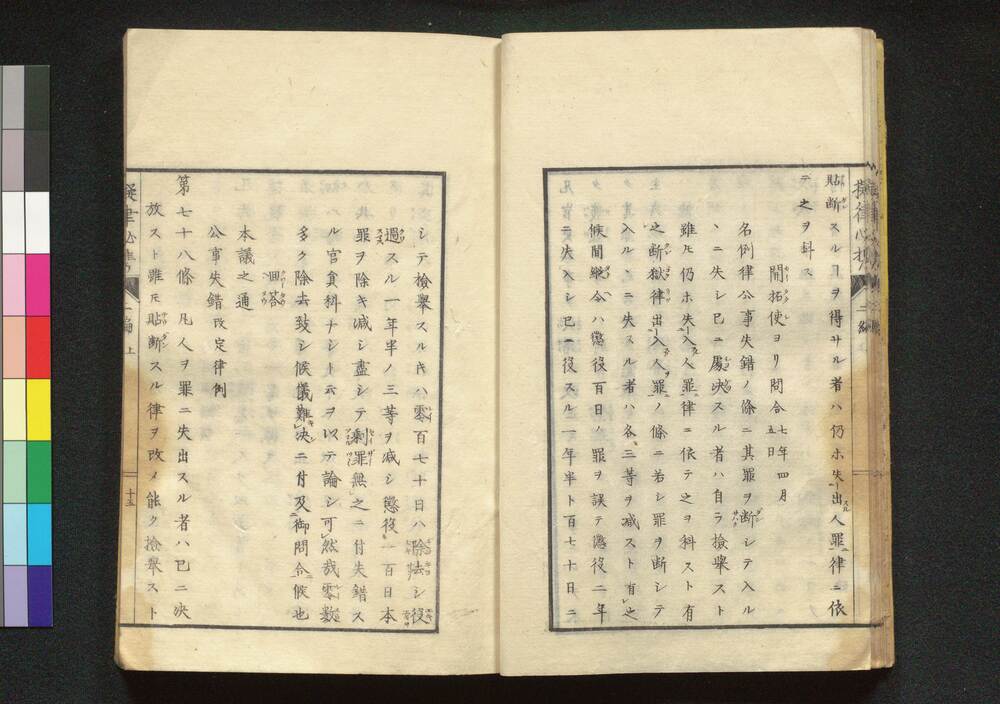 貼断スルヿヲ得サル者ハ仍ホ失出人罪律ニ依
テ之ヲ科ス
開拓使ヨリ問合七年四月五日
名例律公事失錯ノ條ニ其罪ヲ断シテ入ル
丶ニ失シ已ニ處决スル者ハ自ラ撿舉スト
雖𪜈仍ホ失入人罪律ニ依テ之ヲ科スト有
之断獄律出入人罪ノ條ニ若シ罪ヲ断シテ
入ルヽニ失スル者ハ各三等ヲ減スト有之
候間縱令ハ懲役百日ノ罪ヲ誤テ懲役二年
ニ失入シ已ニ役スル一年半ト百七十日ニ
シテ撿舉スル𪜈ハ零百七十日ハ除去シ役
過スル一年半ノ三等ヲ減シ懲役一百日本
罪ヲ除キ減シ盡シテ剩罪無之ニ付失錯ス
ル官員科ナシト云ヲ以テ論シ可然哉零數
多ク除去致シ候儀難决ニ付及御問合候也
回答
本議之通
公事失錯改定律例
第七十八條 凡人ヲ罪ニ失出スル者ハ已ニ决
放スト雖𪜈貼断スル律ヲ改メ能ク撿舉スト
二編 上
十五